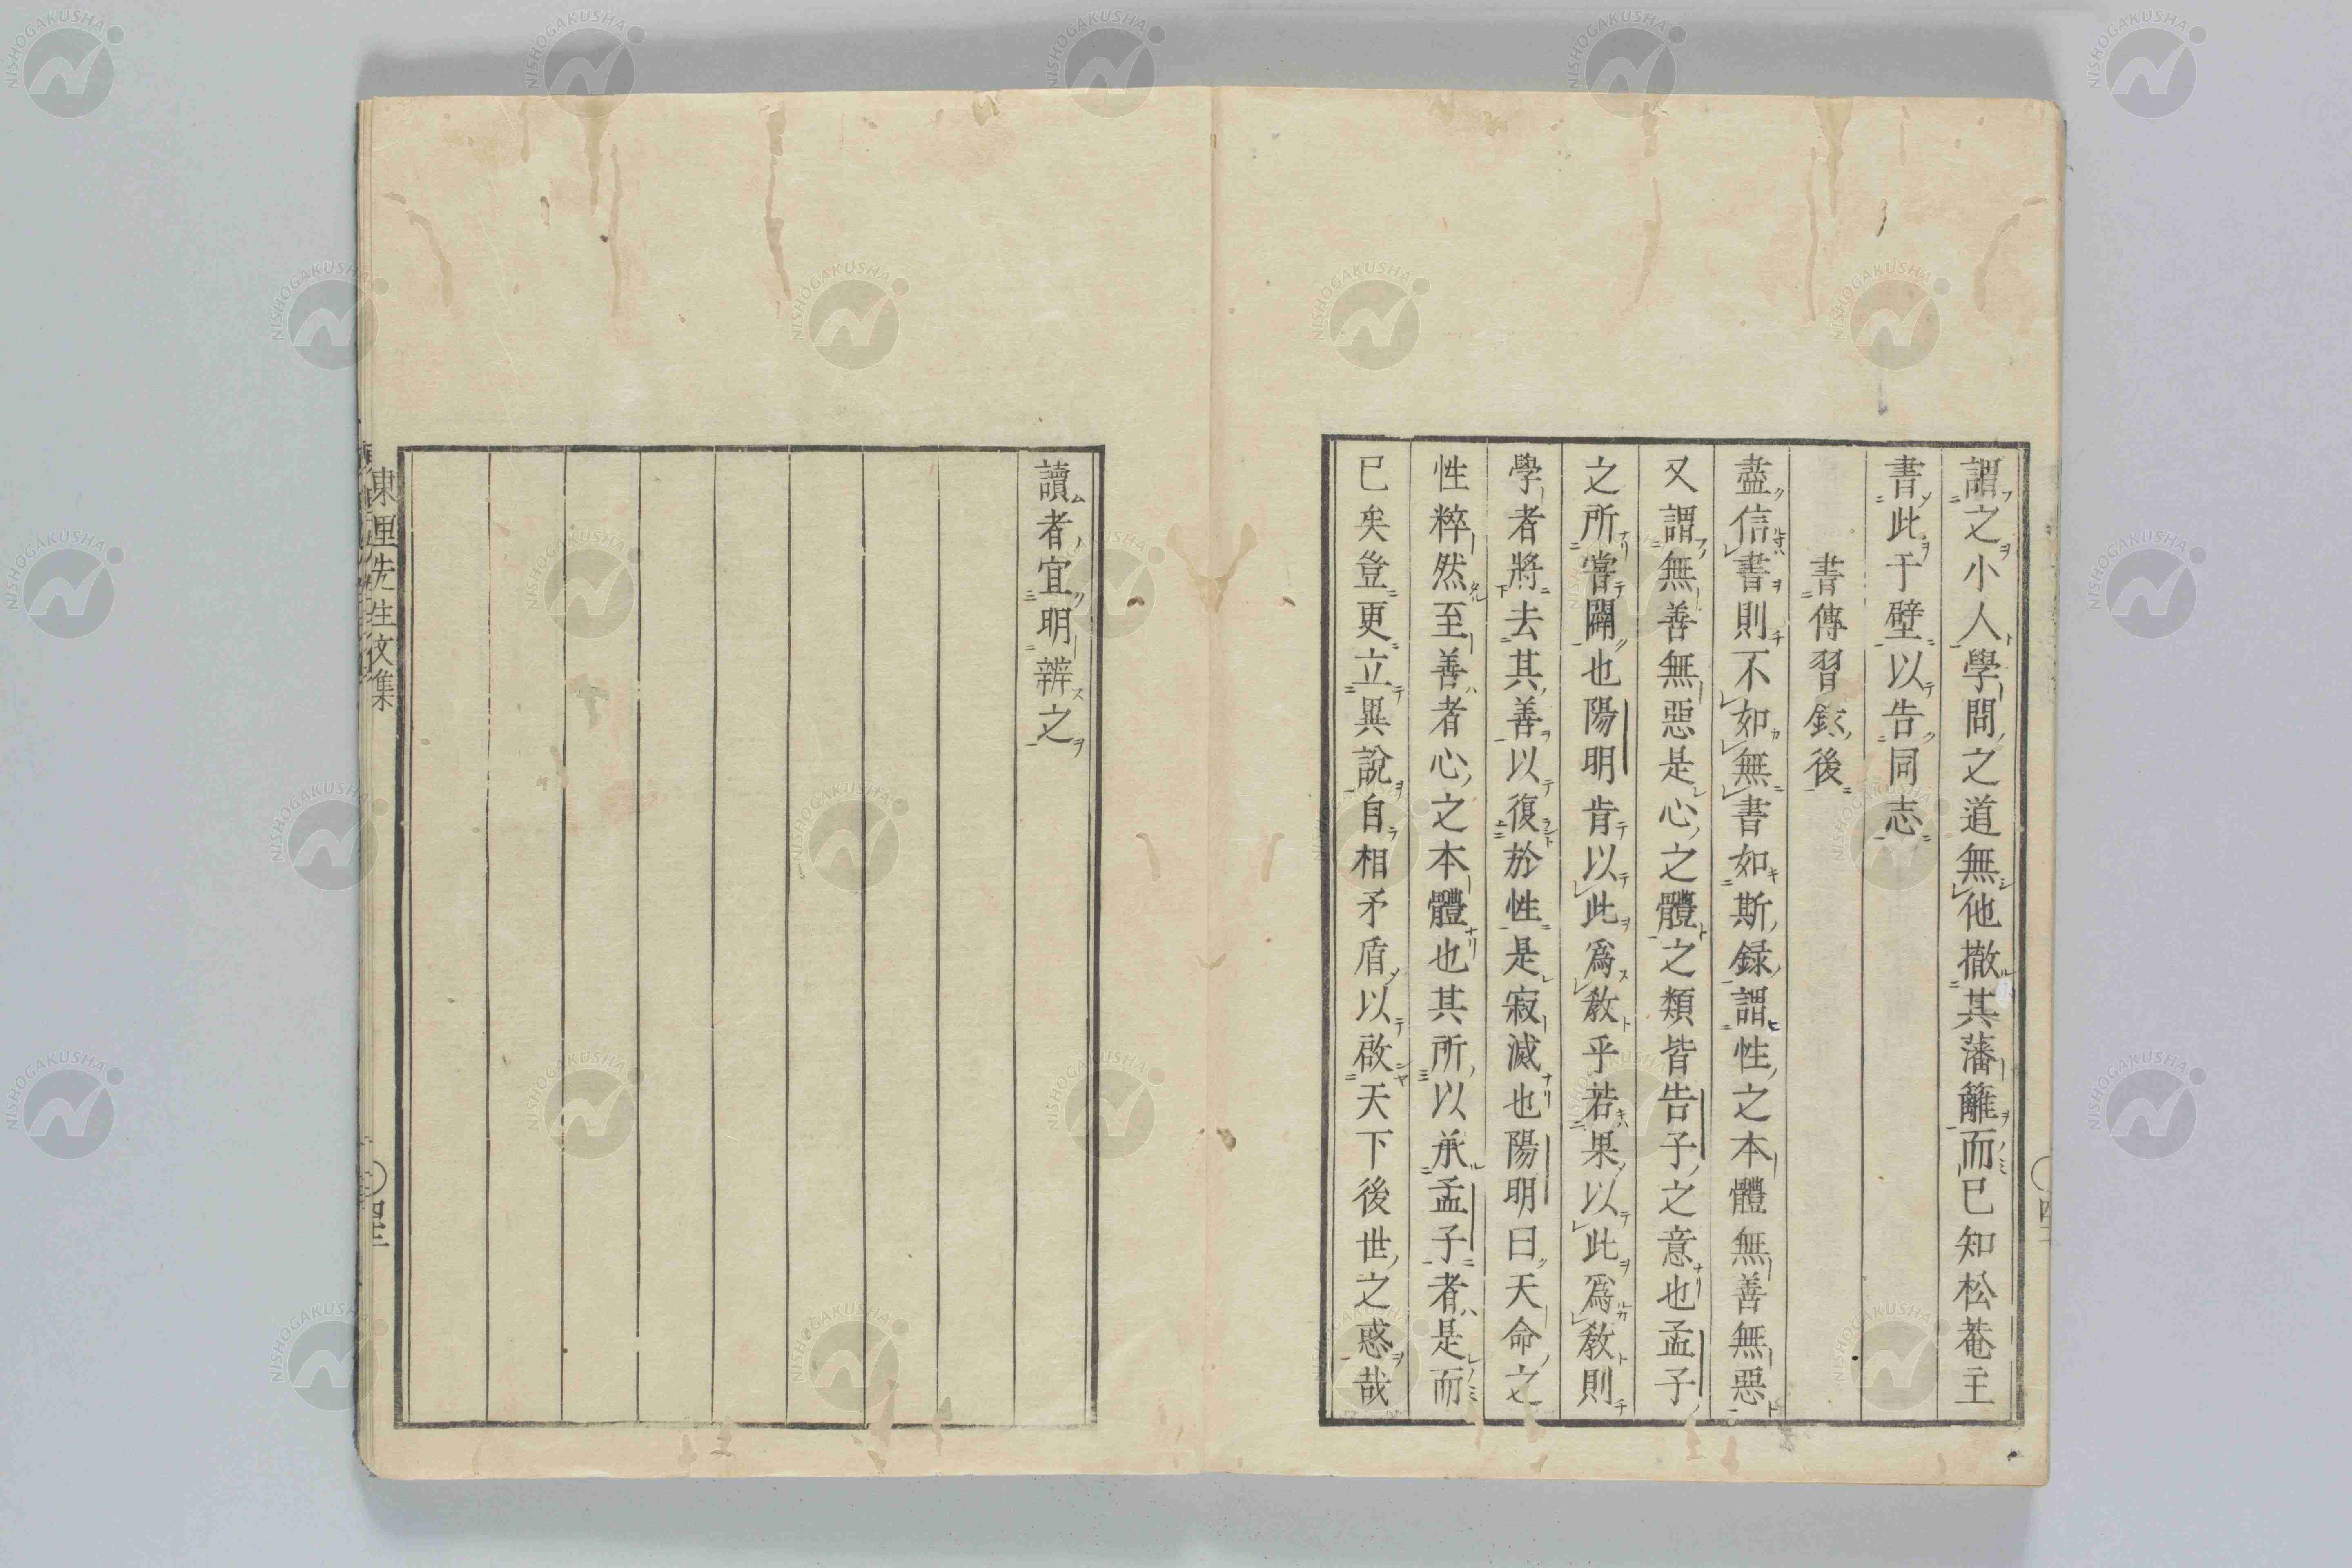 謂之小人學問之道無他撤其藩籬而已知松菴主
書此于壁以告同志
書傳習錄後
盡信書則不如無書如斯録謂性之本體無善無惡
又謂無善無惡是心之體之類皆告子之意也孟子
之所嘗闢也陽明肯以此爲教乎若果以此爲教則
學者將去其善以復於性是寂滅也陽明曰天命之
性粹然至善者心之本體也其所以承孟子者是而
已矣豈更立異說自相矛盾以啟天下後世之惑哉
讀者宜明辨之
東里先生文集
NISHOGAKUSHA